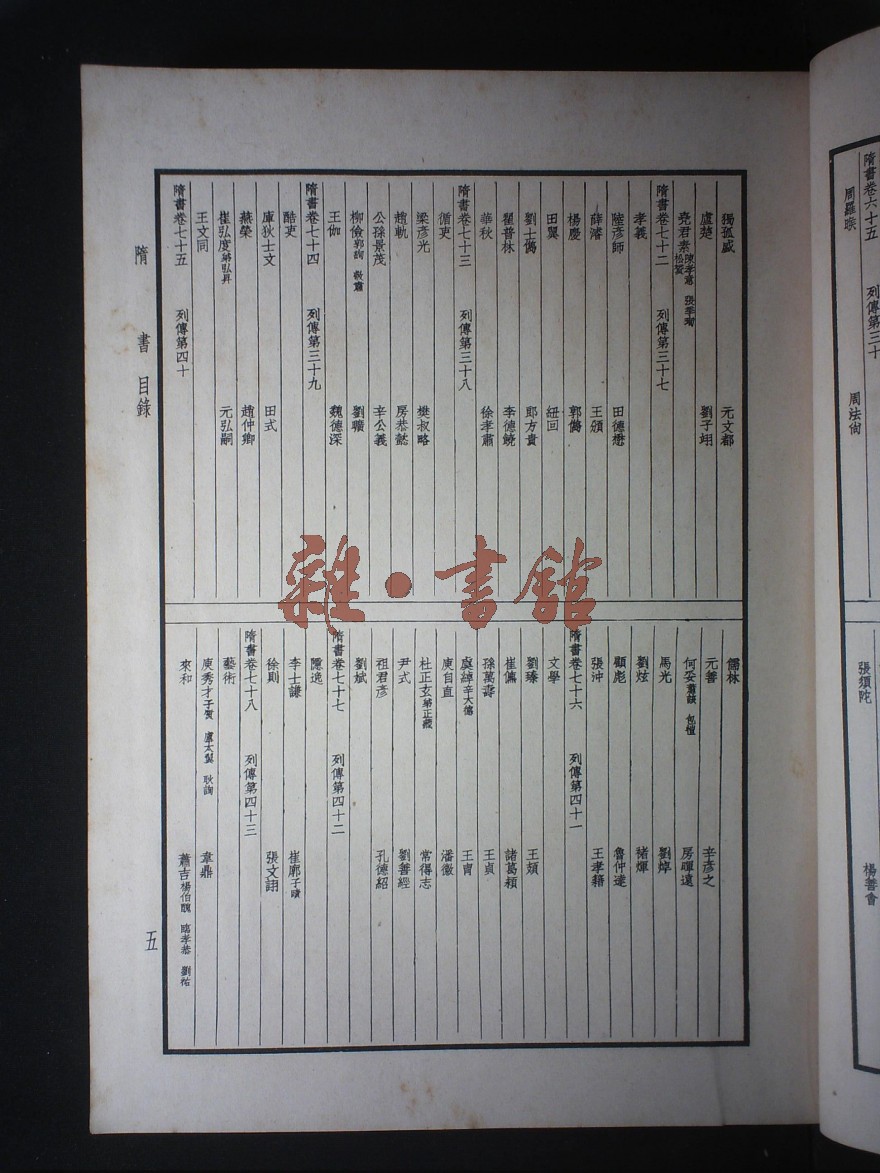 獨孤盛 元文都
盧楚 劉子翊
堯君素 陳孝意 張季珣 松贇
隋書卷七十二 列傳第三十七
孝義
陸彥師 田德懋
薛濬 王頒
楊慶 郭儁
田翼 紐回
劉士儁 郎方貴
翟普林 李德饒
華秋 徐孝肅
隋書卷七十三 列傳第三十八
循吏
梁彥光 樊叔略
趙軌 房恭懿
公孫景茂 辛公義
柳儉 郭詢 敬肅 劉曠
王伽 魏德深
隋書卷七十四 列傳第三十九
酷吏
庫狄士文 田式
燕榮 趙仲卿
崔弘度 弟弘昇 元弘嗣
王文同
隋書卷七十五 列傳第四十
儒林
元善 辛彥之
何妥 蕭該 包愷 房暉遠
馬光 劉焯
劉炫 褚煇
顧彪 魯仲達
張沖 王孝籍
隋書卷七十六 列傳第四十一
文學
劉臻 王頍
崔儦 諸葛潁
孫萬壽 王貞
虞綽 辛大德 王冑
庾自直 潘徽
杜正玄 弟正藏 常得志
尹式 劉善經
祖君彥 孔德紹
劉斌
隋書卷七十七 列傳第四十二
隱逸
李士謙 崔廓 子賾
徐則 張文詡
隋書卷七十八 列傳第四十三
藝術
庾季才 子質 盧太翼 耿詢 韋鼎
來和 蕭吉 楊伯醜 臨孝恭 劉祐
隋書 目錄
五
雜·書館
隋書卷六十五 列傳第三十
周羅睺 周法尚
張須陀 楊善會